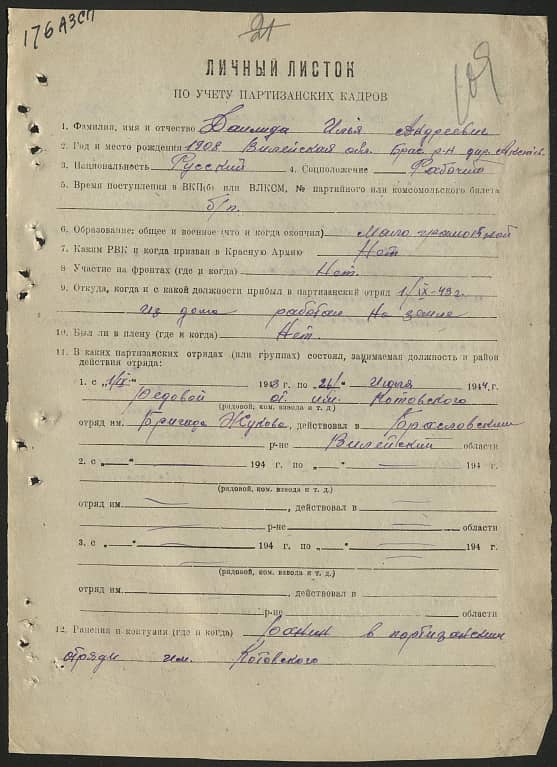 176 АЗСП
21
109
ЛИЧНЫЙ ЛИСТОК
ПО УЧЕТУ ПАРТИЗАНСКИХ КАДРОВ
1. Фамилия, имя и отчество Даилида Илья Андреевич
2. Год и место рождения 1908 Вилейская обл. Брас. р-н дир.
3. Национальность Русский 4. Соцположение Рабочий
5. Время поступления в ВКП(б) или ВЛКСМ, № партийного или комсомольского билета
б/п.
6. Образование: общее и военное (что и когда окончил) Мало грамотной
7. Каким РВК и когда призван в Красную Армию Нет
8 Участие на фронтах (где и когда) Нет.
9. Откуда, когда и с какой должности прибыл в партизанский отряд 1/IX-43 г.
из дома работал на земле
10. Был ли в плену (где и когда) Нет.
11. В каких партизанских отрядах (или группах) состоял, занимаемая должность и район
действия отряда:
1. с „1/IX“ 1943 г. по „ “ Июля 1944 г.
Редовой от. им. Котовского
(рядовой, ком. взвода и т. д.)
отряд им. Бригада Жукова, действовал в Брасловским
р-не Вилейский области
2. с „ “ 194 г. по „ “ 194 г.
(рядовой, ком. взвода и т. д.)
отряд им. , действовал в
р-не области
3. с „ “ 194 г. по „ “ 194 г.
(рядовой, ком. взвода и т. д.)
отряд им. , действовал в
р-не области
12. Ранения и контузии (где и когда) в партизанским
отряди им. Котовского